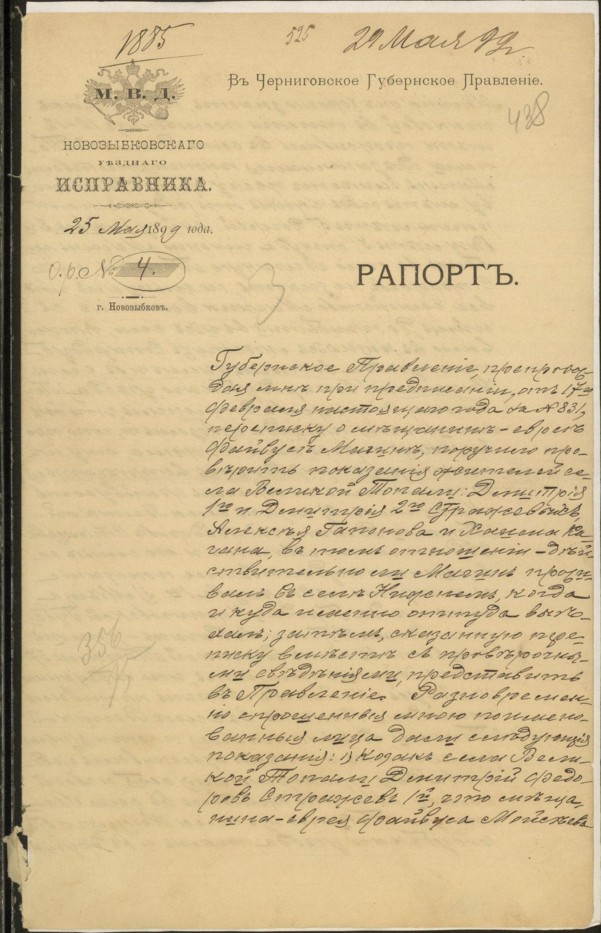 1885
525
29 Мая 99
Въ Черниговское Губернское Правленіе.
438
М. В. Д.
НОВОЗЫБКОВСКАГО
УѢЗДНАГО
ИСПРАВНИКА.
25 Мая 1899 года.
о.р. № 4.
г. Новозыбковъ.
3
РАПОРТЪ.
Губернское Правленіе, препрово-
дая мнѣ при предписаніи, отъ 17го
Февраля настоящаго года за № 831,
переписку о мѣщанинѣ-евреѣ
Файвусѣ Магинѣ, поручило про-
вѣрить показанія жителей се-
ла Великой Топали: Дмитрія
1го и Дмитрія 2го Стражевыхъ,
Алексѣя Гапонова и Хаима Ка-
гана, въ томъ отношеніи - дѣй-
ствительно ли Магинъ прожи-
валъ въ селѣ когда
и куда именно оттуда выѣ-
халъ; затѣмъ, сказанную пере-
писку вмѣстѣ съ провѣрочны-
ми свѣдѣніями, представить
въ Правленіе. Разновремен-
но опрошенныя мною поимено-
ванныя лица дали слѣдующія
показанія: 1) козакъ села Вели-
кой Топали Дмитрій Федо-
ровъ Стражевъ 1й, что мѣща-
нина-еврея Файвуса Мойсѣева
356